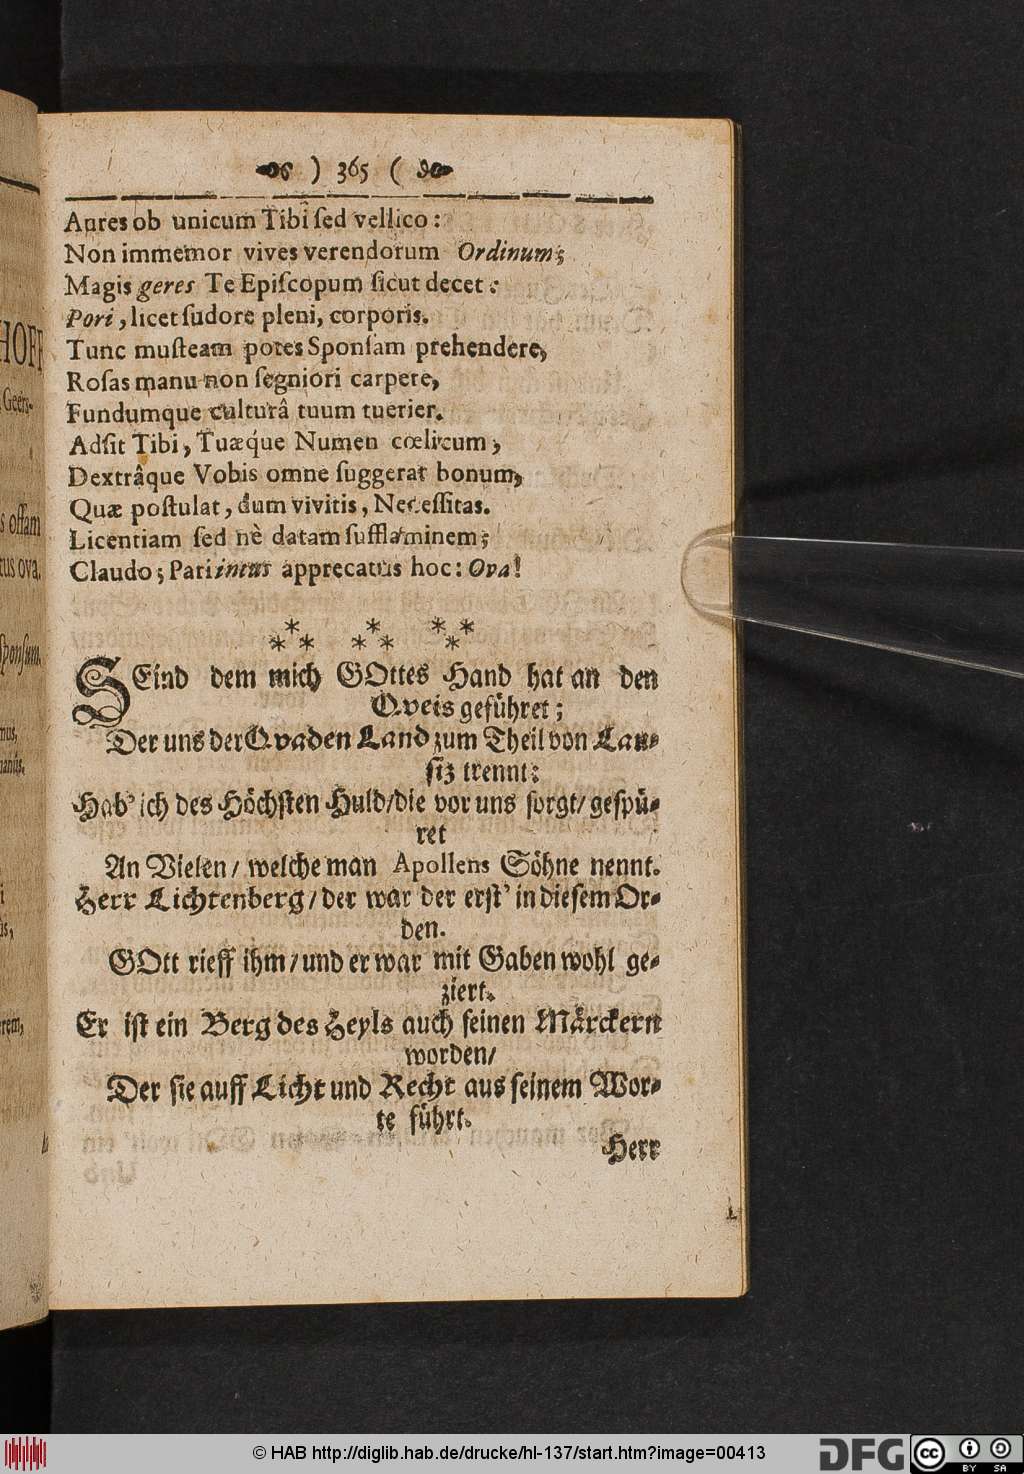 ) 365 (
Aures ob unicum Tibi ſed vellico:
Non immemor vives verendorum Ordinum;
Magis geres Te Epiſcopum ſicut decet:
Pori, licet ſudore pleni, corporis.
Tunc muſteam potes Sponſam prehendere,
Roſas manu non ſegniori carpere,
Fundumque culturâ tuum tuerier.
Adſit Tibi, Tuæq́ue Numen cœlitum,
Dextrâque Vobis omne ſuggerat bonum,
Quæ poſtulat, dum vivitis, Neceſſitas.
Licentiam ſed nè datam ſufflaminem;
Claudo; Pari intus apprecatus hoc: Ova!
SEind dem mich GOttes Hand hat an den
Qveis geführet;
Der uns der Qvaden Land zum Theil von Lau-
ſiz trennt:
Hab’ ich des Höchſten Huld/die vor uns ſorgt/geſpü-
ret
An Vielen/ welche man Apollens Söhne nennt.
Herr Lichtenberg/der war der erſt’ in dieſem Or-
den.
GOtt rieff ihm/und er war mit Gaben wohl ge-
ziert.
Er iſt ein Berg des Heyls auch ſeinen Märckern
worden/
Der ſie auff Licht und Recht aus ſeinem Wor-
te führt.
Herr
HOFF
Geers-
s offam
tus ova,
Sponſum,
© HAB http://diglib.hab.de/drucke/hl-137/start.htm?image=00413
DFG
cc
BY SA